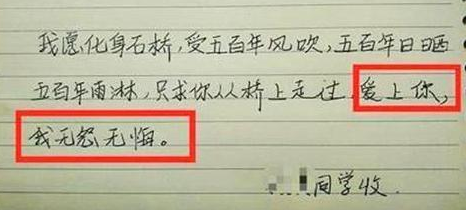 我愿化身石桥,受五百年风吹,五百年日晒
五百年雨淋,只求你从桥上走过,爱上你,
我无怨无悔。
同学收.